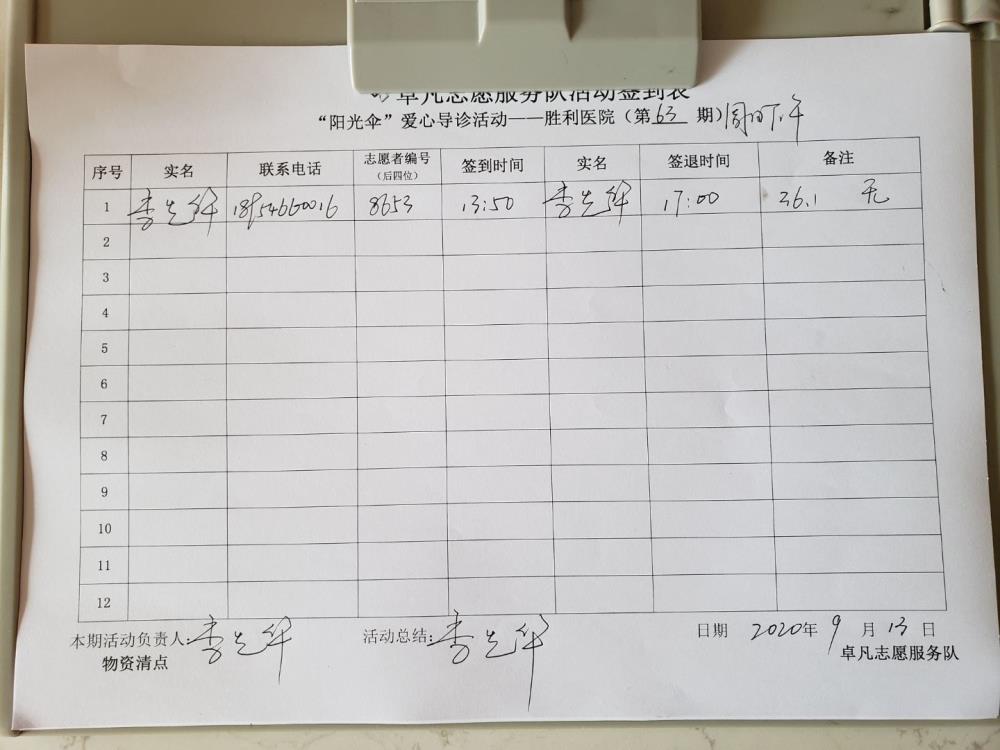 卓凡志愿服务队活动签到表
“阳光伞”爱心导诊活动——胜利医院（第63期）周日下午
序号 实名 联系电话 志愿者编号（后四位） 签到时间 实名 签退时间 备注
1 李先华 18954660016 8653 13:50 李先华 17:00 36.1 无
2
3
4
5
6
7
8
9
10
11
12
本期活动负责人:李先华 活动总结:李先华 日期 2020年9月13日
物资清点 卓凡志愿服务队